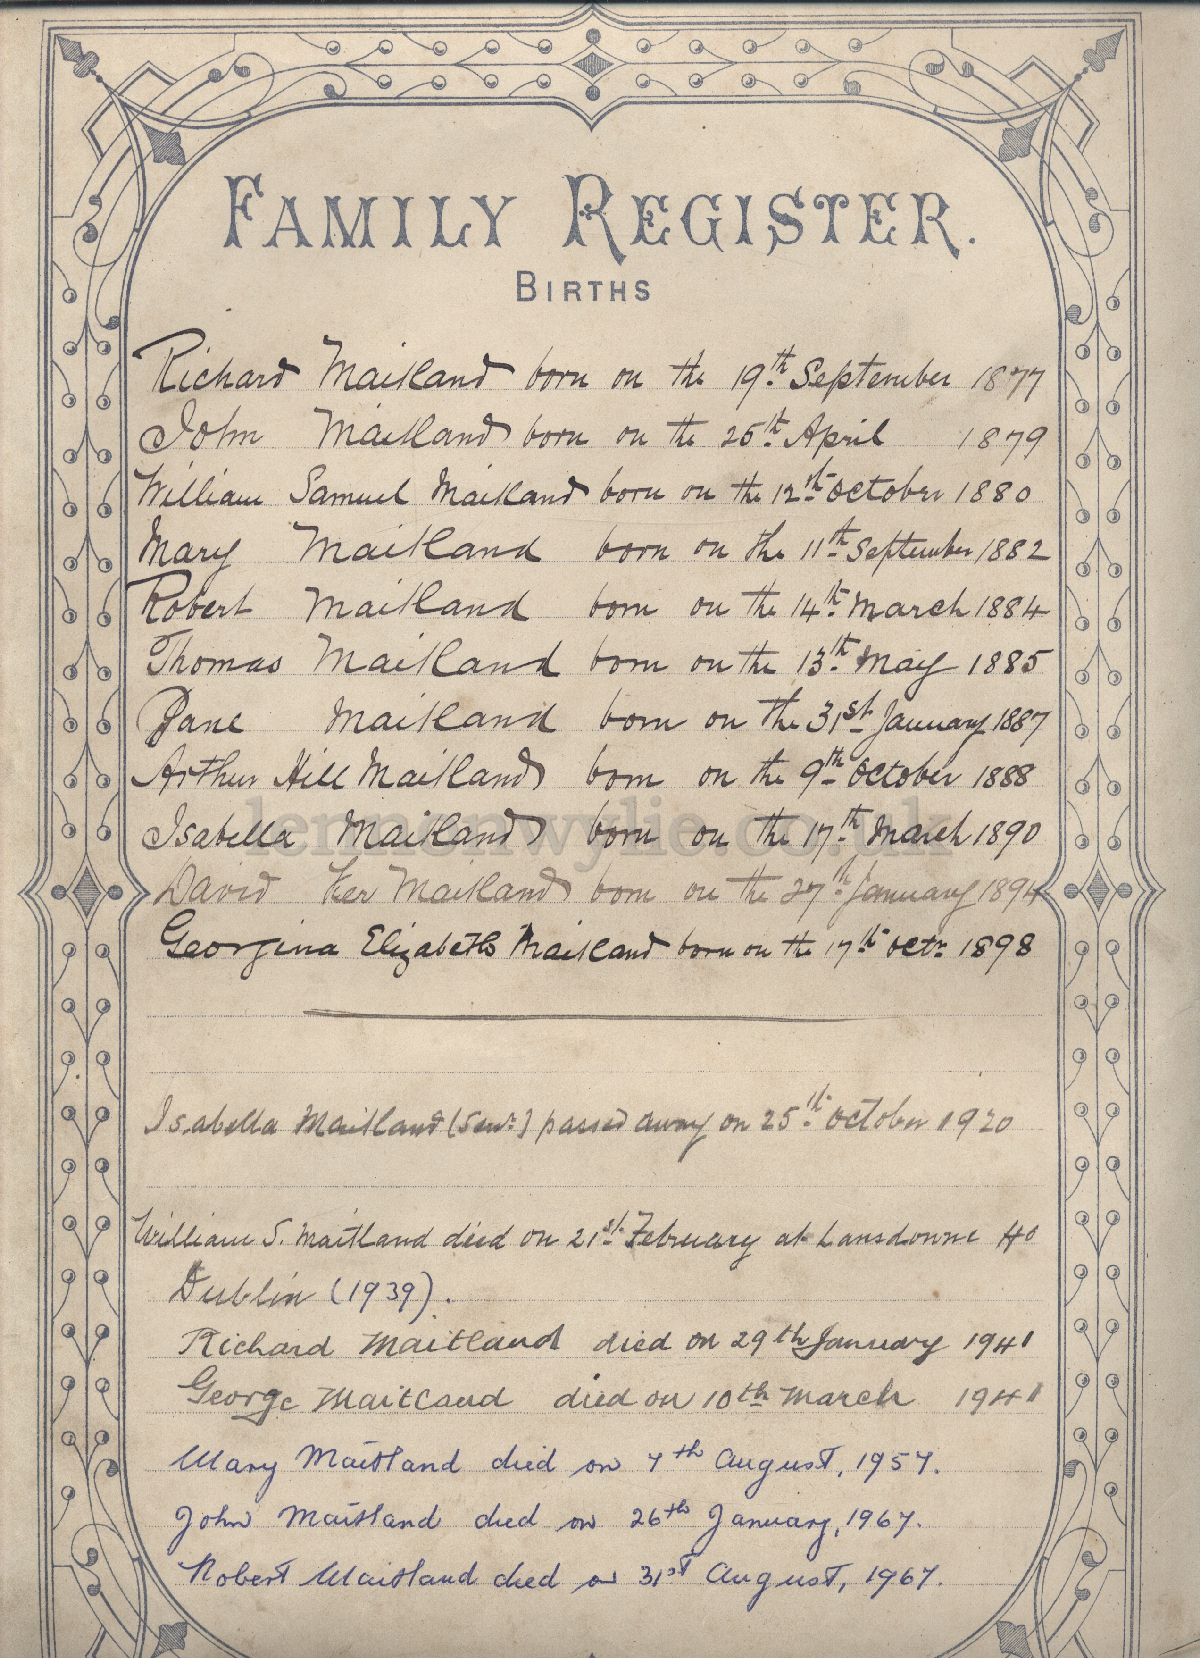 FAMILY REGISTER.
BIRTHS
Richard Maitland born on the 19th September 1877
John Maitland born on the 26th April 1879
William Samuel Maitland born on the 12th October 1880
Mary Maitland born on the 11th September 1882
Robert Maitland born on the 14th March 1884
Thomas Maitland born on the 13th May 1885
Jane Maitland born on the 31st January 1887
Arthur Hill Maitland born on the 9th October 1888
Isabella Maitland born on the 17th March 1890
David Ker Maitland born on the 27th January 1894
Georgina Elizabeth Maitland born on the 17th Octr 1898
Isabella Maitland (Senr) passed away on 25th October 1920
William S. Maitland died on 21st February at Lansdowne
Dublin (1939).
Richard Maitland died on 29th January 1941
George Maitland died on 10th March 1941
Mary Maitland died on 7th August, 1957.
John Maitland died on 26th January, 1967.
Robert Maitland died on 31st August, 1967.